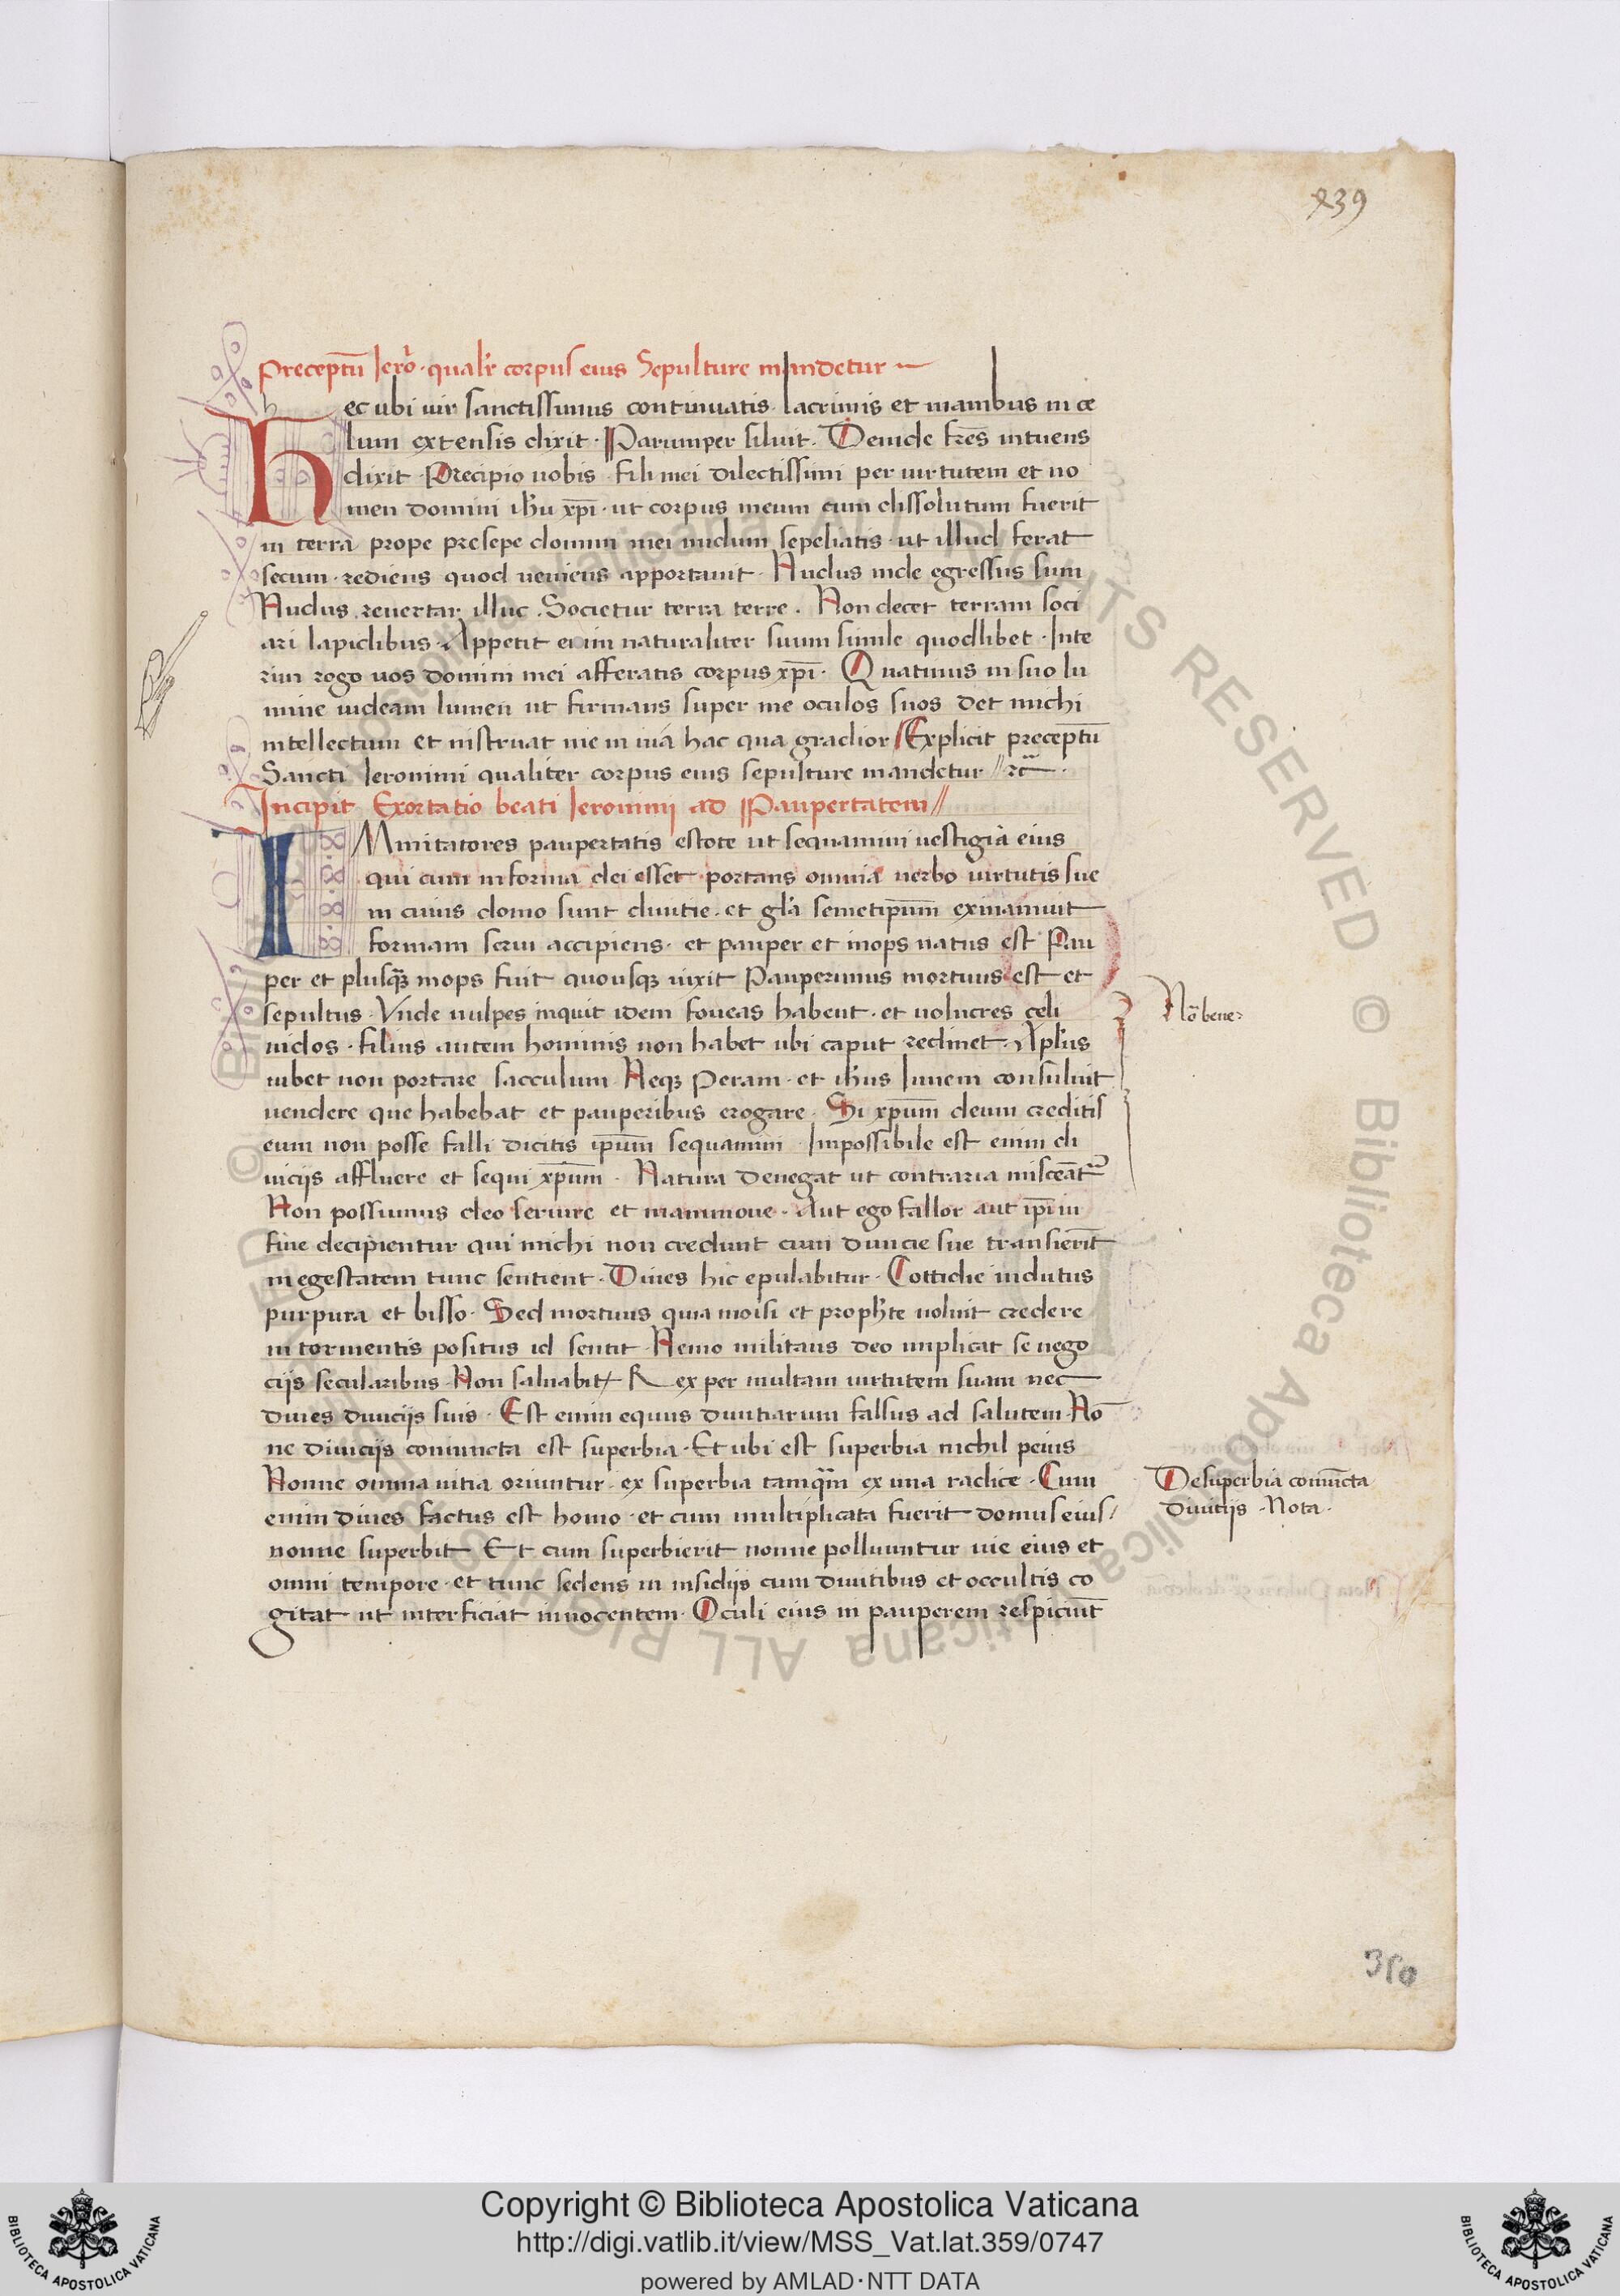 239
Preceptū Iero. qualr corpus eius Sepulture mandetur
Hec ubi uir sanctissimus continuatis lacrimis et manibus in ce
lum extensis dixit. Parumper siluit. Deinde fr̄es intuens
dixit. Precipio uobis fili mei dilectissimi per uirtutem et no
men domini ih̄u xp̄i. ut corpus meum cum dissolutum fuerit
in terra prope presepe domini mei nudum sepeliatis. ut illud ferat
secum. rediens quod ueniens apportauit. Nudus inde egressus sum
Nudus reuertar illuc. Societur terra terre. Non decet terram soci
ari lapidibus. Appetit enim naturaliter suum simile quodlibet. Inte
rim rogo uos domini mei afferatis corpus xp̄i. Quatinus in suo lu
mine uideam lumen ut firmans super me oculos suos det michi
intellectum et instruat me in uia hac qua gradior Explicit preceptū
Sancti Ieronimi qualiter corpus eius sepulture mandetur // rc̄
Incipit Exortatio beati Ieronimi ad Paupertatem //
IMmitatores paupertatis estote ut sequamini uestigia eius
qui cum in forma dei esset. portans omnia uerbo uirtutis sue
in cuius domo sunt diuitie. et gl̄a semetip̄um exinaniuit
formam serui accipiens. et pauper et inops natus est Pau
per et plusq̄ inops fuit quousq; uixit Pauperimus mortuus est et
sepultus. Vnde uulpes inquit idem foueas habent. et uolucres celi
nidos. filius autem hominis non habet ubi caput reclinet. Aplus
iubet non portare sacculum Neq; Peram. et ih̄us Iunem consuluit
uendere que habebat et pauperibus erogare. Si xp̄um deum creditis
eum non posse falli dicitis ip̄um sequamini. Impossibile est enim di
uicijs affluere et sequi xp̄um. Natura denegat ut contraria misceāt
Non possumus deo seruire et mammone. Aut ego fallor aut ip̄i in
fine decipientur qui michi non credunt cum diuicie sue transierīt
in egestatem tunc sentient. Diues hic epulabitur. Cottidie indutus
purpura et bisso. Sed mortuus quia moisi et proph̄te noluit credere
in tormentis positus id sentit. Nemo militans deo implicat se nego
cijs secularibus Non saluabit Rex per multam uirtutem suam nec
diues diuicijs suis. Est enim equus diuitiarum falsus ad salutem. Nō
ne diuicijs coniuncta est superbia. Et ubi est superbia nichil peius
Nonne omnia uitia oriuntur. ex superbia tamq̄m ex una radice. Cum
enim diues factus est homo. et cum multiplicata fuerit domus eius
nonne superbit Et cum superbierit nonne polluuntur uie eius et
omni tempore. et tunc sedens in insidijs cum diuitibus et occultis co
gitat ut interficiat innocentem. Oculi eius in pauperem respiciūt
Nō bene
De superbia coniūcta
Diuitijs. Nota.
© Biblioteca Apostolica Vaticana ALL RIGHTS RESERVED
Copyright © Biblioteca Apostolica Vaticana
http://digi.vatlib.it/view/MSS_Vat.lat.359/0747
powered by AMLAD·NTT DATA
BIBLIOTECA APOSTOLICA VATICANA
BIBLIOTECA APOSTOLICA VATICANA